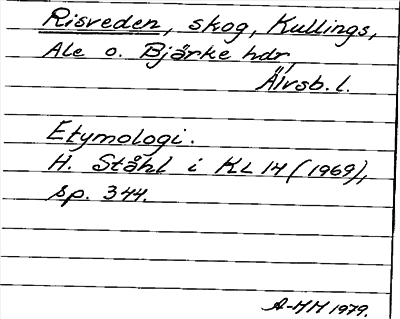 Risveden, skog, Kullings,
Ale o. Bjärke hdr,
Älvsb. l.
Etymologi.
H. Ståhl i KL 14 (1969),
sp. 344.
A-MH 1979.